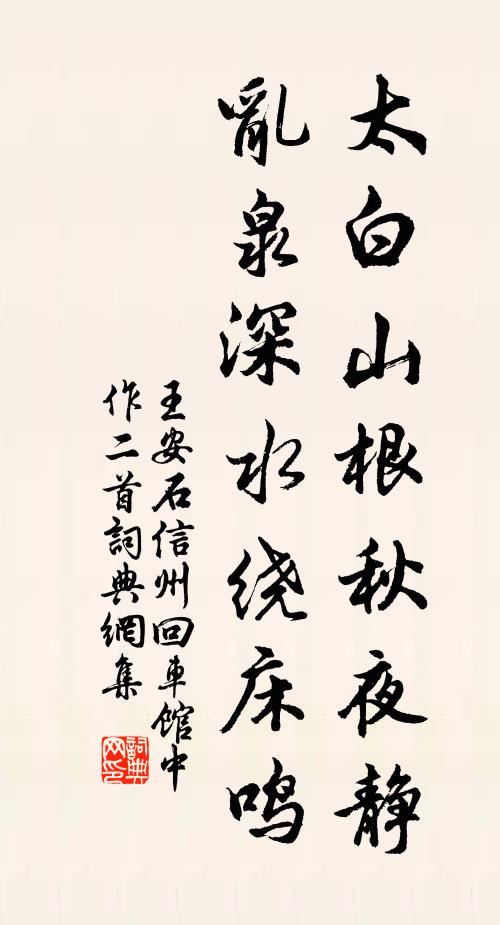 太白山根秋夜静
亂泉深水绕床鸣
王安石信州回車馆中
作二首詞典網集
詞典
网印